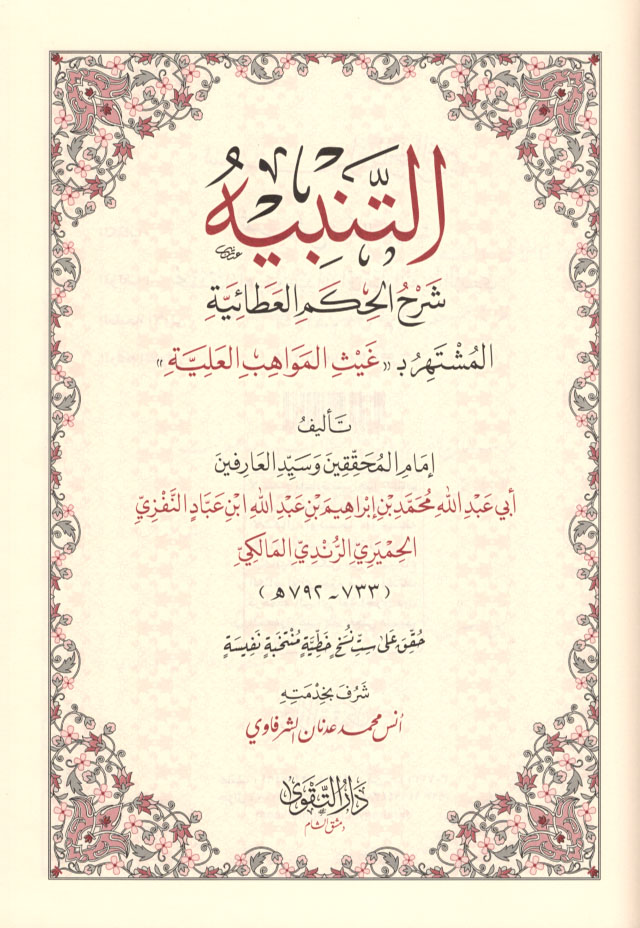 التَّنبِيهُ
شَرْحُ الحِكَمِ العَطَائِيَّةِ
المُشْتَهِرُ بـ «غَيْثِ المَوَاهِبِ العَلِيَّةِ»
تَأليفُ
إمَامِ المُحَقِّقِينَ وَسَيِّدِ العَارِفِينَ
أَبِي عَبْدِ اللهِ مُحَمَّدِ بْنِ إِبْرَاهِيمَ بْنِ عَبْدِ اللهِ ابْنِ عَبَّادٍ النَّفْزِيِّ
الحِمْيَرِيِّ الرُّنْدِيِّ المَالكِيِّ
(٧٣٣ ـ ٧٩٢ هـ)
حُقِّقَ عَلَى سِتِّ نُسَخٍ خَطِّيَّةٍ مُنْتَخَبَةٍ نَفِيسَةٍ
شَرُفَ بِخِدْمَتِهِ
أنس محمد عدنان الشرفاوي
دَارُ التَّقْوَى
دمشق الشام